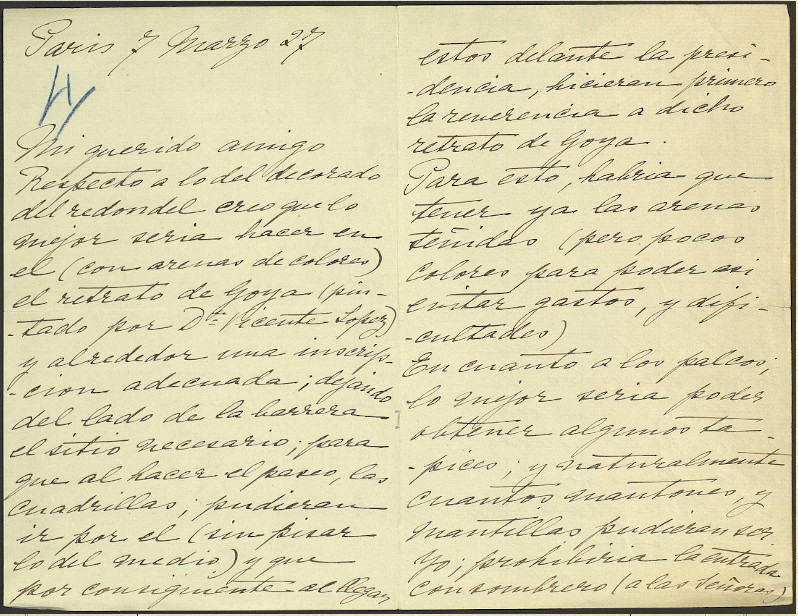 Paris 7 Marzo 27
4
Mi querido amigo
Respecto a lo del decorado
del redondel creo que lo
mejor seria hacer en
el (con arenas de colores)
el retrato de Goya (pin-
-tado por Dⁿ Vicente Lopez)
y alrededor una inscrip-
-cion adecuada; dejando
del lado de la barrera
el sitio necesario; para
que al hacer el paseo, las
cuadrillas; pudieran
ir por el (sin pisar
lo del medio) y que
por consiguiente al llegar
estos delante la presi-
-dencia, hicieran primero
la reverencia a dicho
retrato de Goya.
Para esto, habria que
tener ya las arenas
teñidas (pero pocos
colores para poder asi
evitar gastos, y difi-
-cultades)
En cuanto a los palcos;
lo mejor seria poder
obtener algunos ta-
-pices; y naturalmente
cuantos mantones, y
mantillas pudieran ser
Yo; prohibiria la entrada
con sombrero (a las Señoras)